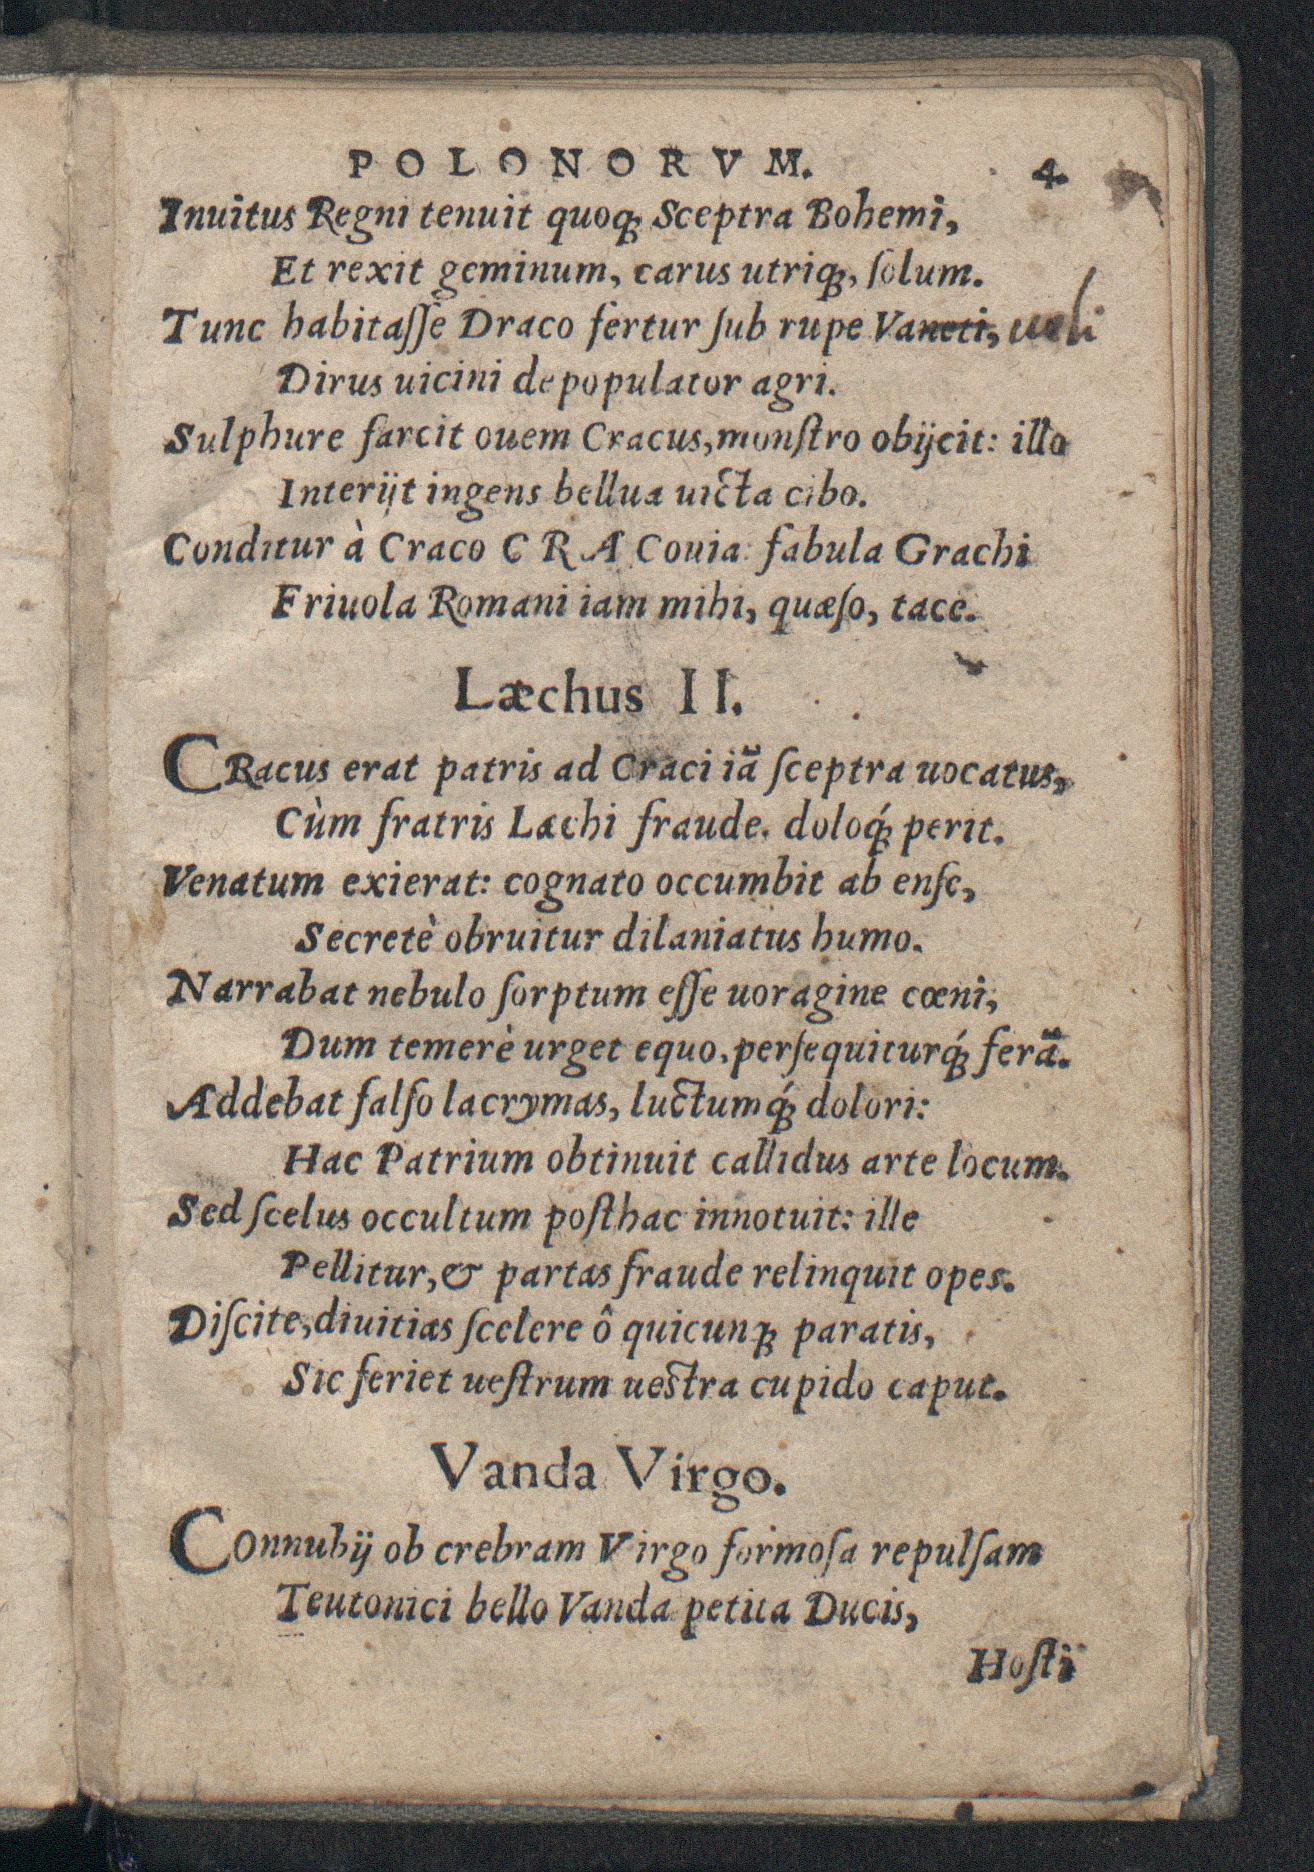 POLONORVM. 4
Inuitus Regni tenuit quoq; Sceptra Bohemi,
Et rexit geminum, carus utriq;, ſolum.
Tunc habitaſſe Draco fertur ſub rupe Vaneti, ueli
Dirus uicini depopulator agri.
Sulphure farcit ouem Cracus, monſtro obijcit: illo
Interijt ingens bellua uicta cibo.
Conditur à Craco C R A Couia: fabula Grachi
Friuola Romani iam mihi, quæſo, tace.
Læchus II.
CRacus erat patris ad Craci iã ſceptra uocatus,
Cùm fratris Læchi fraude, doloq́; perit.
Venatum exierat: cognato occumbit ab enſe,
Secretè obruitur dilaniatus humo.
Narrabat nebulo ſorptum eſſe uoragine cœni,
Dum temerè urget equo, perſequiturq́; ferã.
Addebat falſo lacrymas, luctumq́; dolori:
Hac Patrium obtinuit callidus arte locum.
Sed ſcelus occultum poſthac innotuit: ille
Pellitur, & partas fraude relinquit opes.
Diſcite, diuitias ſcelere ô quicunq; paratis,
Sic feriet ueſtrum ueſtra cupido caput.
Vanda Virgo.
COnnubij ob crebram Virgo formoſa repulſam
Teutonici bello Vanda petita Ducis,
Hoſti